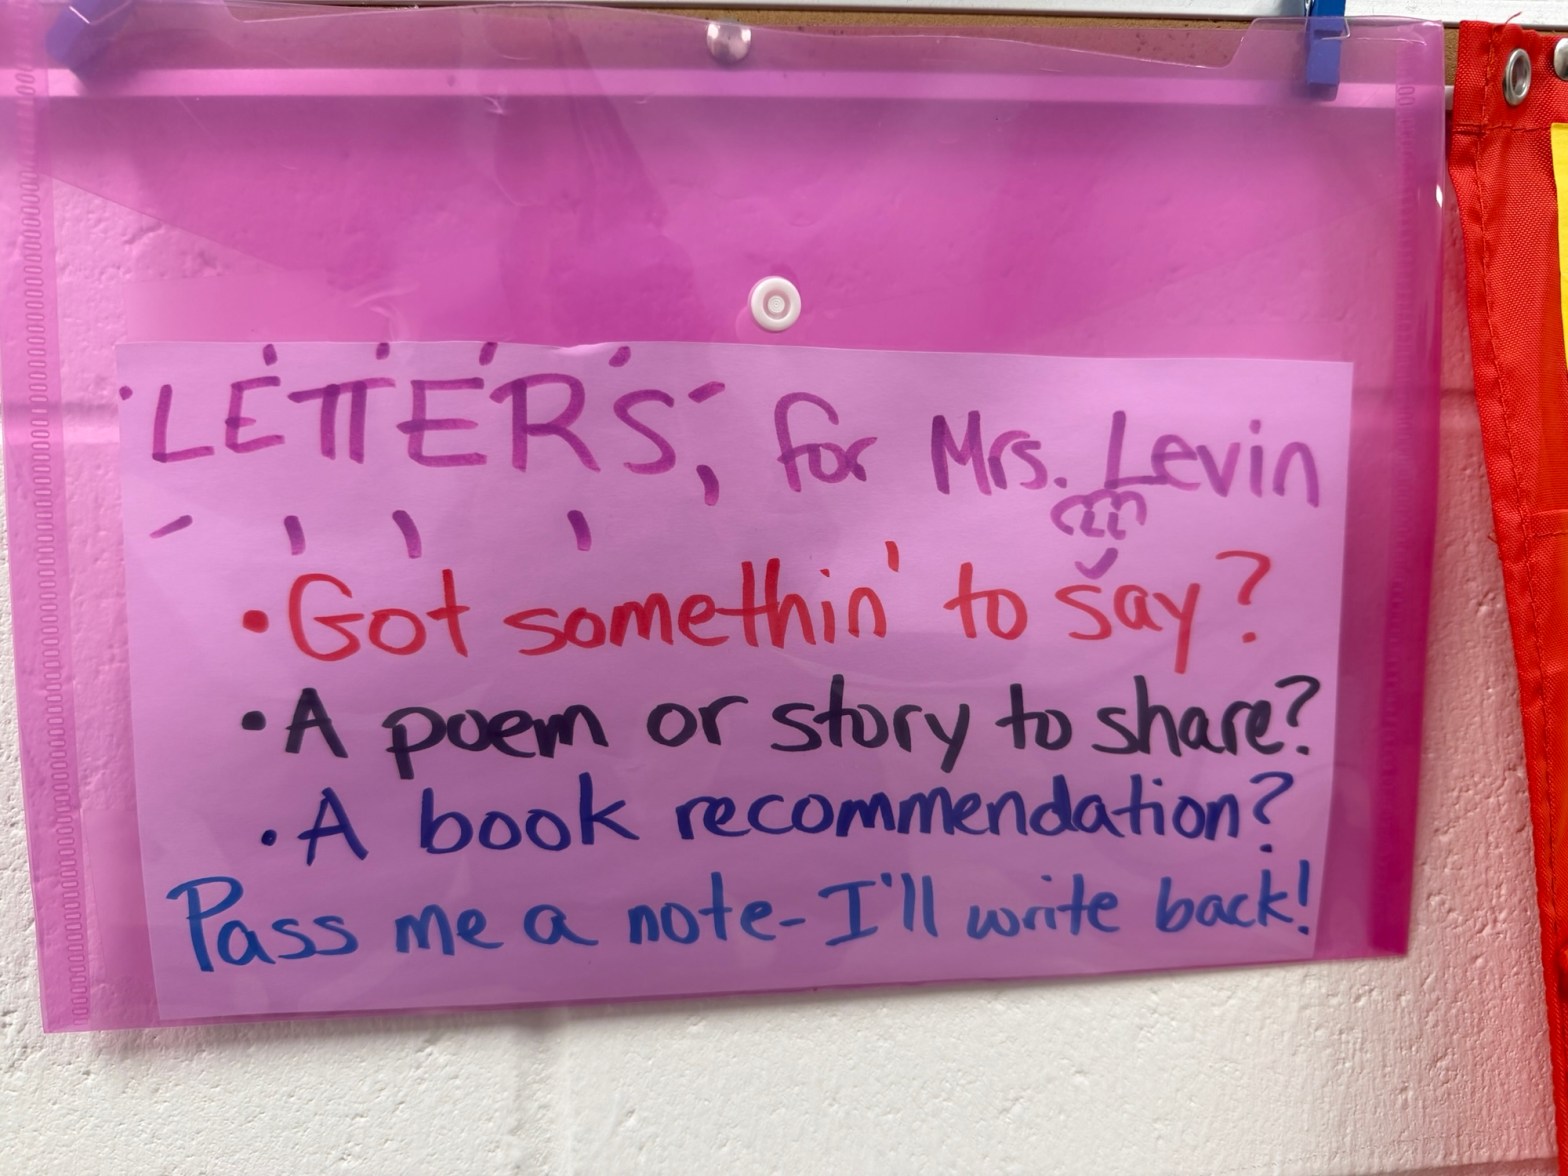 LETTERS, for Mrs. Levin
• Got somethin' to say?
• A poem or story to share?
• A book recommendation?
Pass me a note - I'll write back!